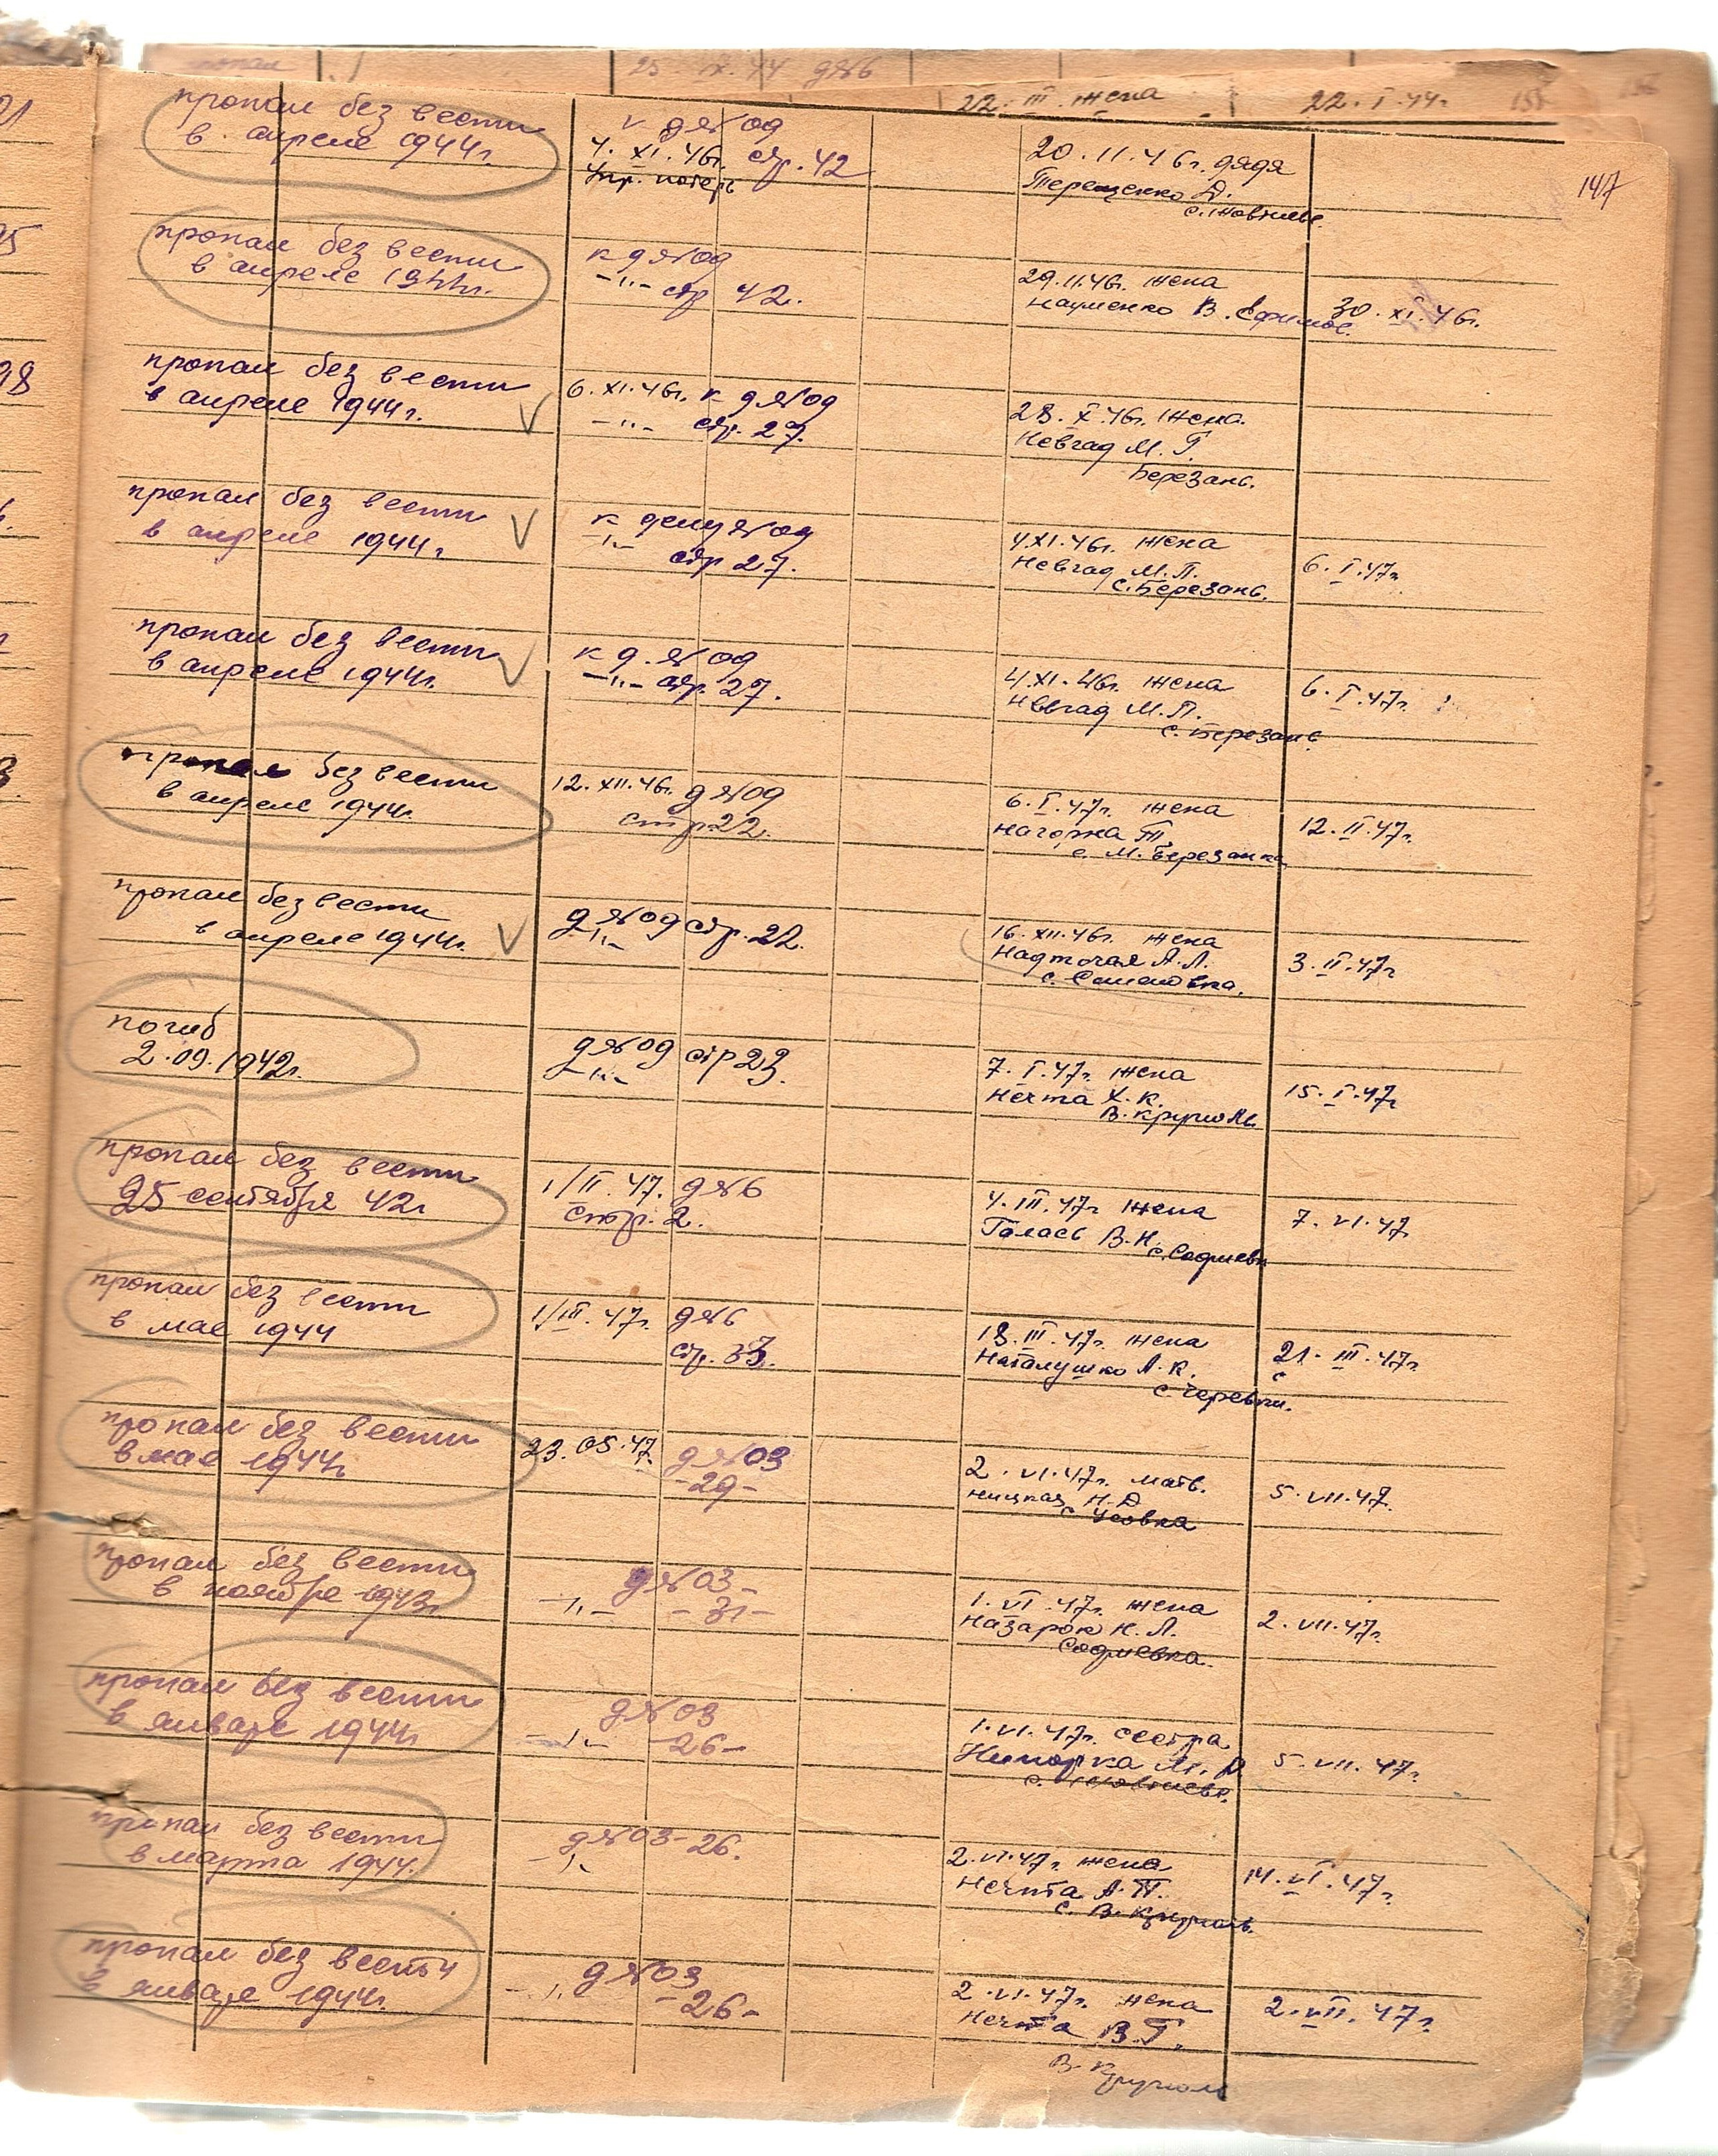 25. IX. 44 д№6
22. III. жена 22. I. 44г.
147
пропал без вести
в. апреле 1944г.
к д №09
4. XI. 46г. стр. 42
Упр. потерь
20. 11. 46г. дядя
Терещенко Д.
пропал без вести
в апреле 1944г.
к д №09
-"- стр 42.
29. 11. 46г. жена
Науменко В. Ефимов.
30. XI. 46г.
пропал без вести
в апреле 1944г.
6. XI. 46г. к д №09
-"- стр. 27.
28. X. 46г. жена.
Невгад М. Г.
Березань.
пропал без вести
в апреле 1944г.
к делу №09
-"- стр 27.
4.XI. 46г. жена
Невгад М. П.
с. Березань.
6. I. 47г.
пропал без вести
в апреле 1944г.
к д. №09
-"- стр. 27.
4.XI. 46г. жена
Невгад М. П.
с. Березань
6. I. 47г.
пропал без вести
в апреле 1944г.
12. XII. 46г. д №09
стр 22.
6. I. 47г. жена
Нагорна Т.
с. М. Березанка
12. II. 47г.
пропал без вести
в апреле 1944г.
д №09 стр. 22.
-"-
16. XII. 46г. жена
Надточая А. Л.
3. II. 47г
погиб
2. 09. 1942г.
д №09 стр 23.
-"-
7. I. 47г. жена
Нечта Х. К.
В. Круполь.
15. I. 47г
пропал без вести
25 сентября 42г
1/II. 47. д №6
стр. 2.
4. III. 47г жена
Галась В. Н.
с. Софиевк
7. VI. 47
пропал без вести
в мае 1944
1/III. 47г. д №6
стр. 33.
18. III. 47г. жена
Наталушко А. К.
21. III. 47г
пропал без вести
в мае 1944г
23. 05. 47 д №03
-29-
2. VI. 47г. мать.
Ницкая Н. Д
с Усовка
5. VII. 47.
пропал без вести
в ноябре 1943г.
д №03-
-"- -31-
1. VI. 47г. жена
Назарок Н. Л.
Софиевка.
2. VII. 47г.
пропал без вести
в январе 1944г
д №03
-"- -26-
1. VI. 47г. сестра
5. VII. 47г.
пропал без вести
в марта 1944.
д №03-26.
-"-
2. VI. 47г. жена
Нечпта А. П.
с. В. Круполь.
14. VI. 47г.
пропал без весты
в январе 1944г.
д №03
-"- -26-
2. VI. 47г. жена
Нечпта В. Г.
В Круполь
2. VII. 47г.